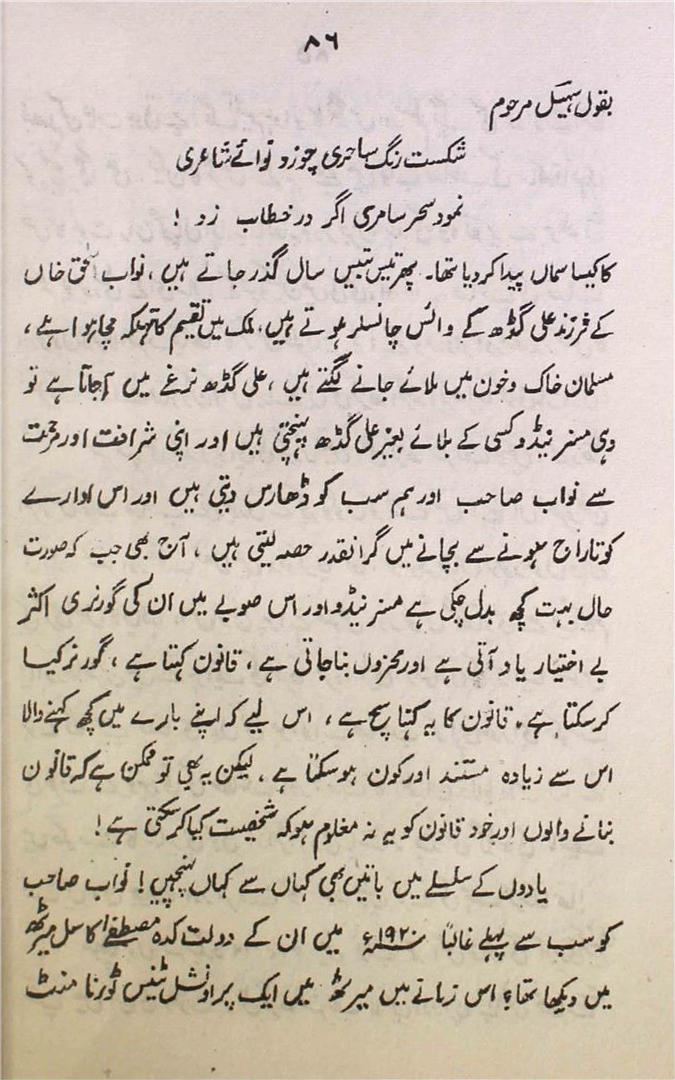 ۸۶
بقول سہیل مرحوم
شکست رنگ ساحری چو زد نوائے شاعری
نمود سحر سامری اگر در خطاب زد !
کا کیسا سماں پیدا کر دیا تھا۔ پھر تیس تیس سال گذر جاتے ہیں، نواب اسحٰق خاں
کے فرزند علی گڈھ کے وائس چانسلر ہوتے ہیں، ملک میں تقسیم کا تہلکہ مچا ہوا ہے،
مسلمان خاک و خون میں ملائے جانے لگتے ہیں، علی گڈھ نرغے میں آ جاتا ہے تو
وہی مسز نیڈو کسی کے بلائے بغیر علی گڈھ پہنچتی ہیں اور اپنی شرافت اور مرحمت
سے نواب صاحب اور ہم سب کو ڈھارس دیتی ہیں اور اس ادارے
کو تاراج ہونے سے بچانے میں گرانقدر حصہ لیتی ہیں، آج بھی جب کہ صورت
حال بہت کچھ بدل چکی ہے مسز نیڈو اور اس صوبے میں ان کی گورنری اکثر
بے اختیار یاد آتی ہے اور محزوں بنا جاتی ہے، قانون کہتا ہے، گورنر کیا
کر سکتا ہے۔ قانون کا یہ کہنا صحیح ہے، اس لیے کہ اپنے بارے میں کچھ کہنے والا
اس سے زیادہ مستند اور کون ہو سکتا ہے، لیکن یہ بھی تو ممکن ہے کہ قانون
بنانے والوں اور خود قانون کو یہ نہ معلوم ہو کہ شخصیت کیا کر سکتی ہے!
یادوں کے سلسلے میں باتیں بھی کہاں سے کہاں پہنچیں! نواب صاحب
کو سب سے پہلے غالباً ۱۹۲۰ء میں ان کے دولت کدہ مصطفےٰ کاسل میرٹھ
میں دیکھا تھا، اس زمانے میں میرٹھ میں ایک پراونشل ٹینس ٹورنامنٹ